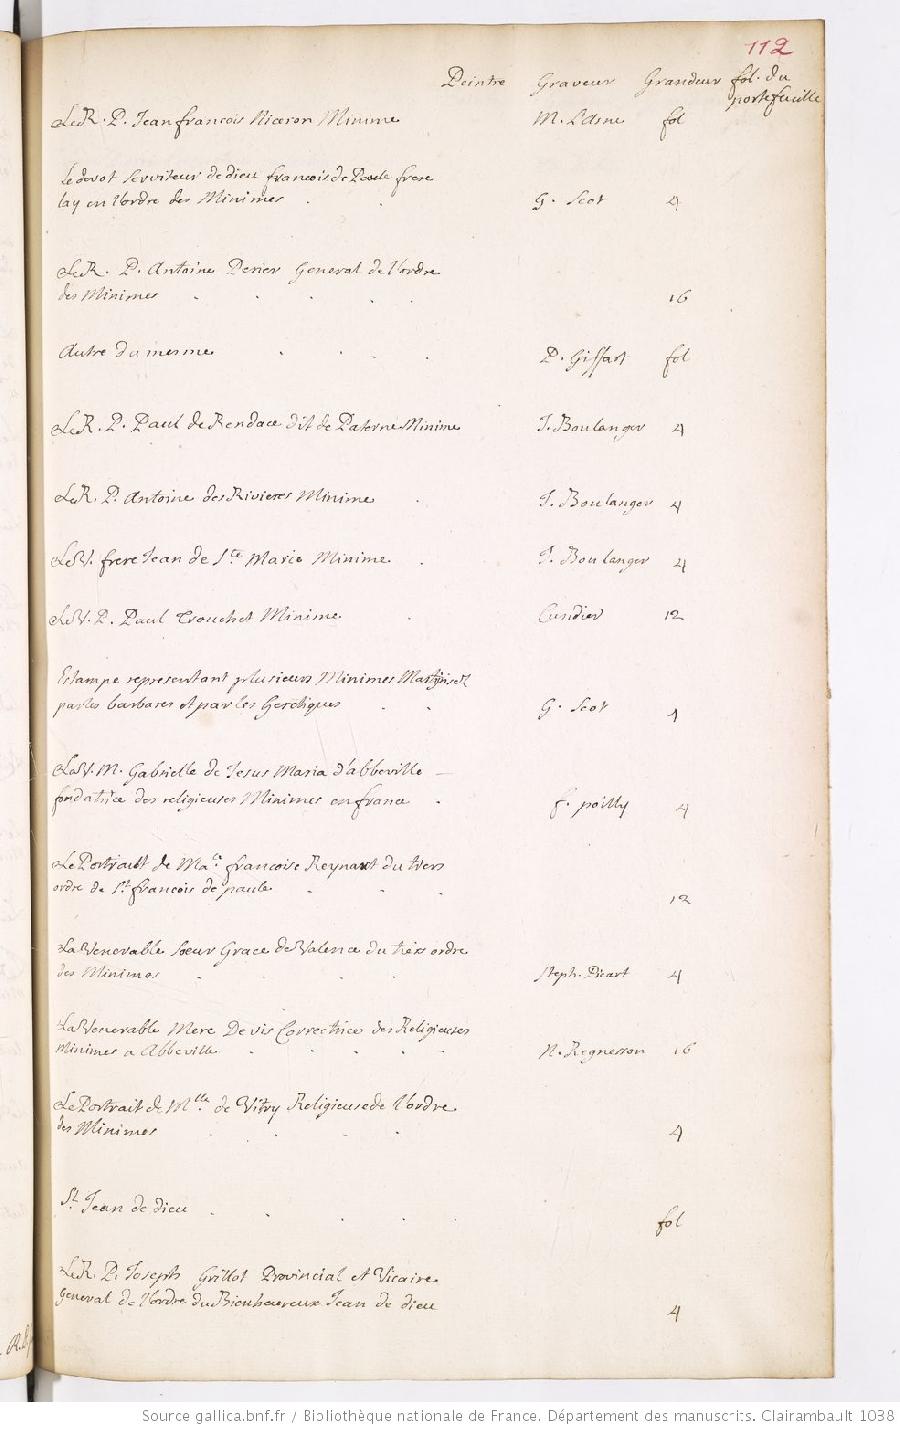 112
Peintre Graveur Grandeur fol. du
portefeuille
Le R. P. Jean francois Niceron Minime M. L'Asne fol
Le devot Serviteur de dieu francois de Paule frere
lay en l'ordre des Minimes G. Scot 4
Le R. P. Antoine Perier General de l'ordre
des Minimes 16
Autre du mesme P. Giffart fol
Le R. P. Paul de Rendace dit de Paterne Minime J. Boulanger 4
Le R. P. Antoine des Rivieres Minime J. Boulanger 4
Le V. frere Jean de Ste Marie Minime J. Boulanger 4
Le V. P. Paul Trouchet Minime Cundier 12
Estampe representant plusieurs Minimes Martyrisez
par les barbares et par les heretiques G. Scot 4
La V. M. Gabrielle de Jesus Maria d'abbeville
fondatrice des religieuses Minimes en france f. poilly 4
Le Portrait de Male francoise Reynaut du tiers
ordre de St francois de paule 12
La Venerable soeur Grace de Valence du tiers ordre
des Minimes Steph. Picart 4
La Venerable Mere De vis Correctrice des Religieuses
Minimes a Abbeville N. Regnesson 16
Le Portrait de Mlle de Vitry Religieuse de l'ordre
des Minimes 4
St Jean de dieu fol
Le R. P. Joseph Grillot Provincial et Vicaire
General de l'ordre du Bienheureux Jean de dieu 4
Source gallica.bnf.fr / Bibliothèque nationale de France. Département des manuscrits. Clairambault 1038